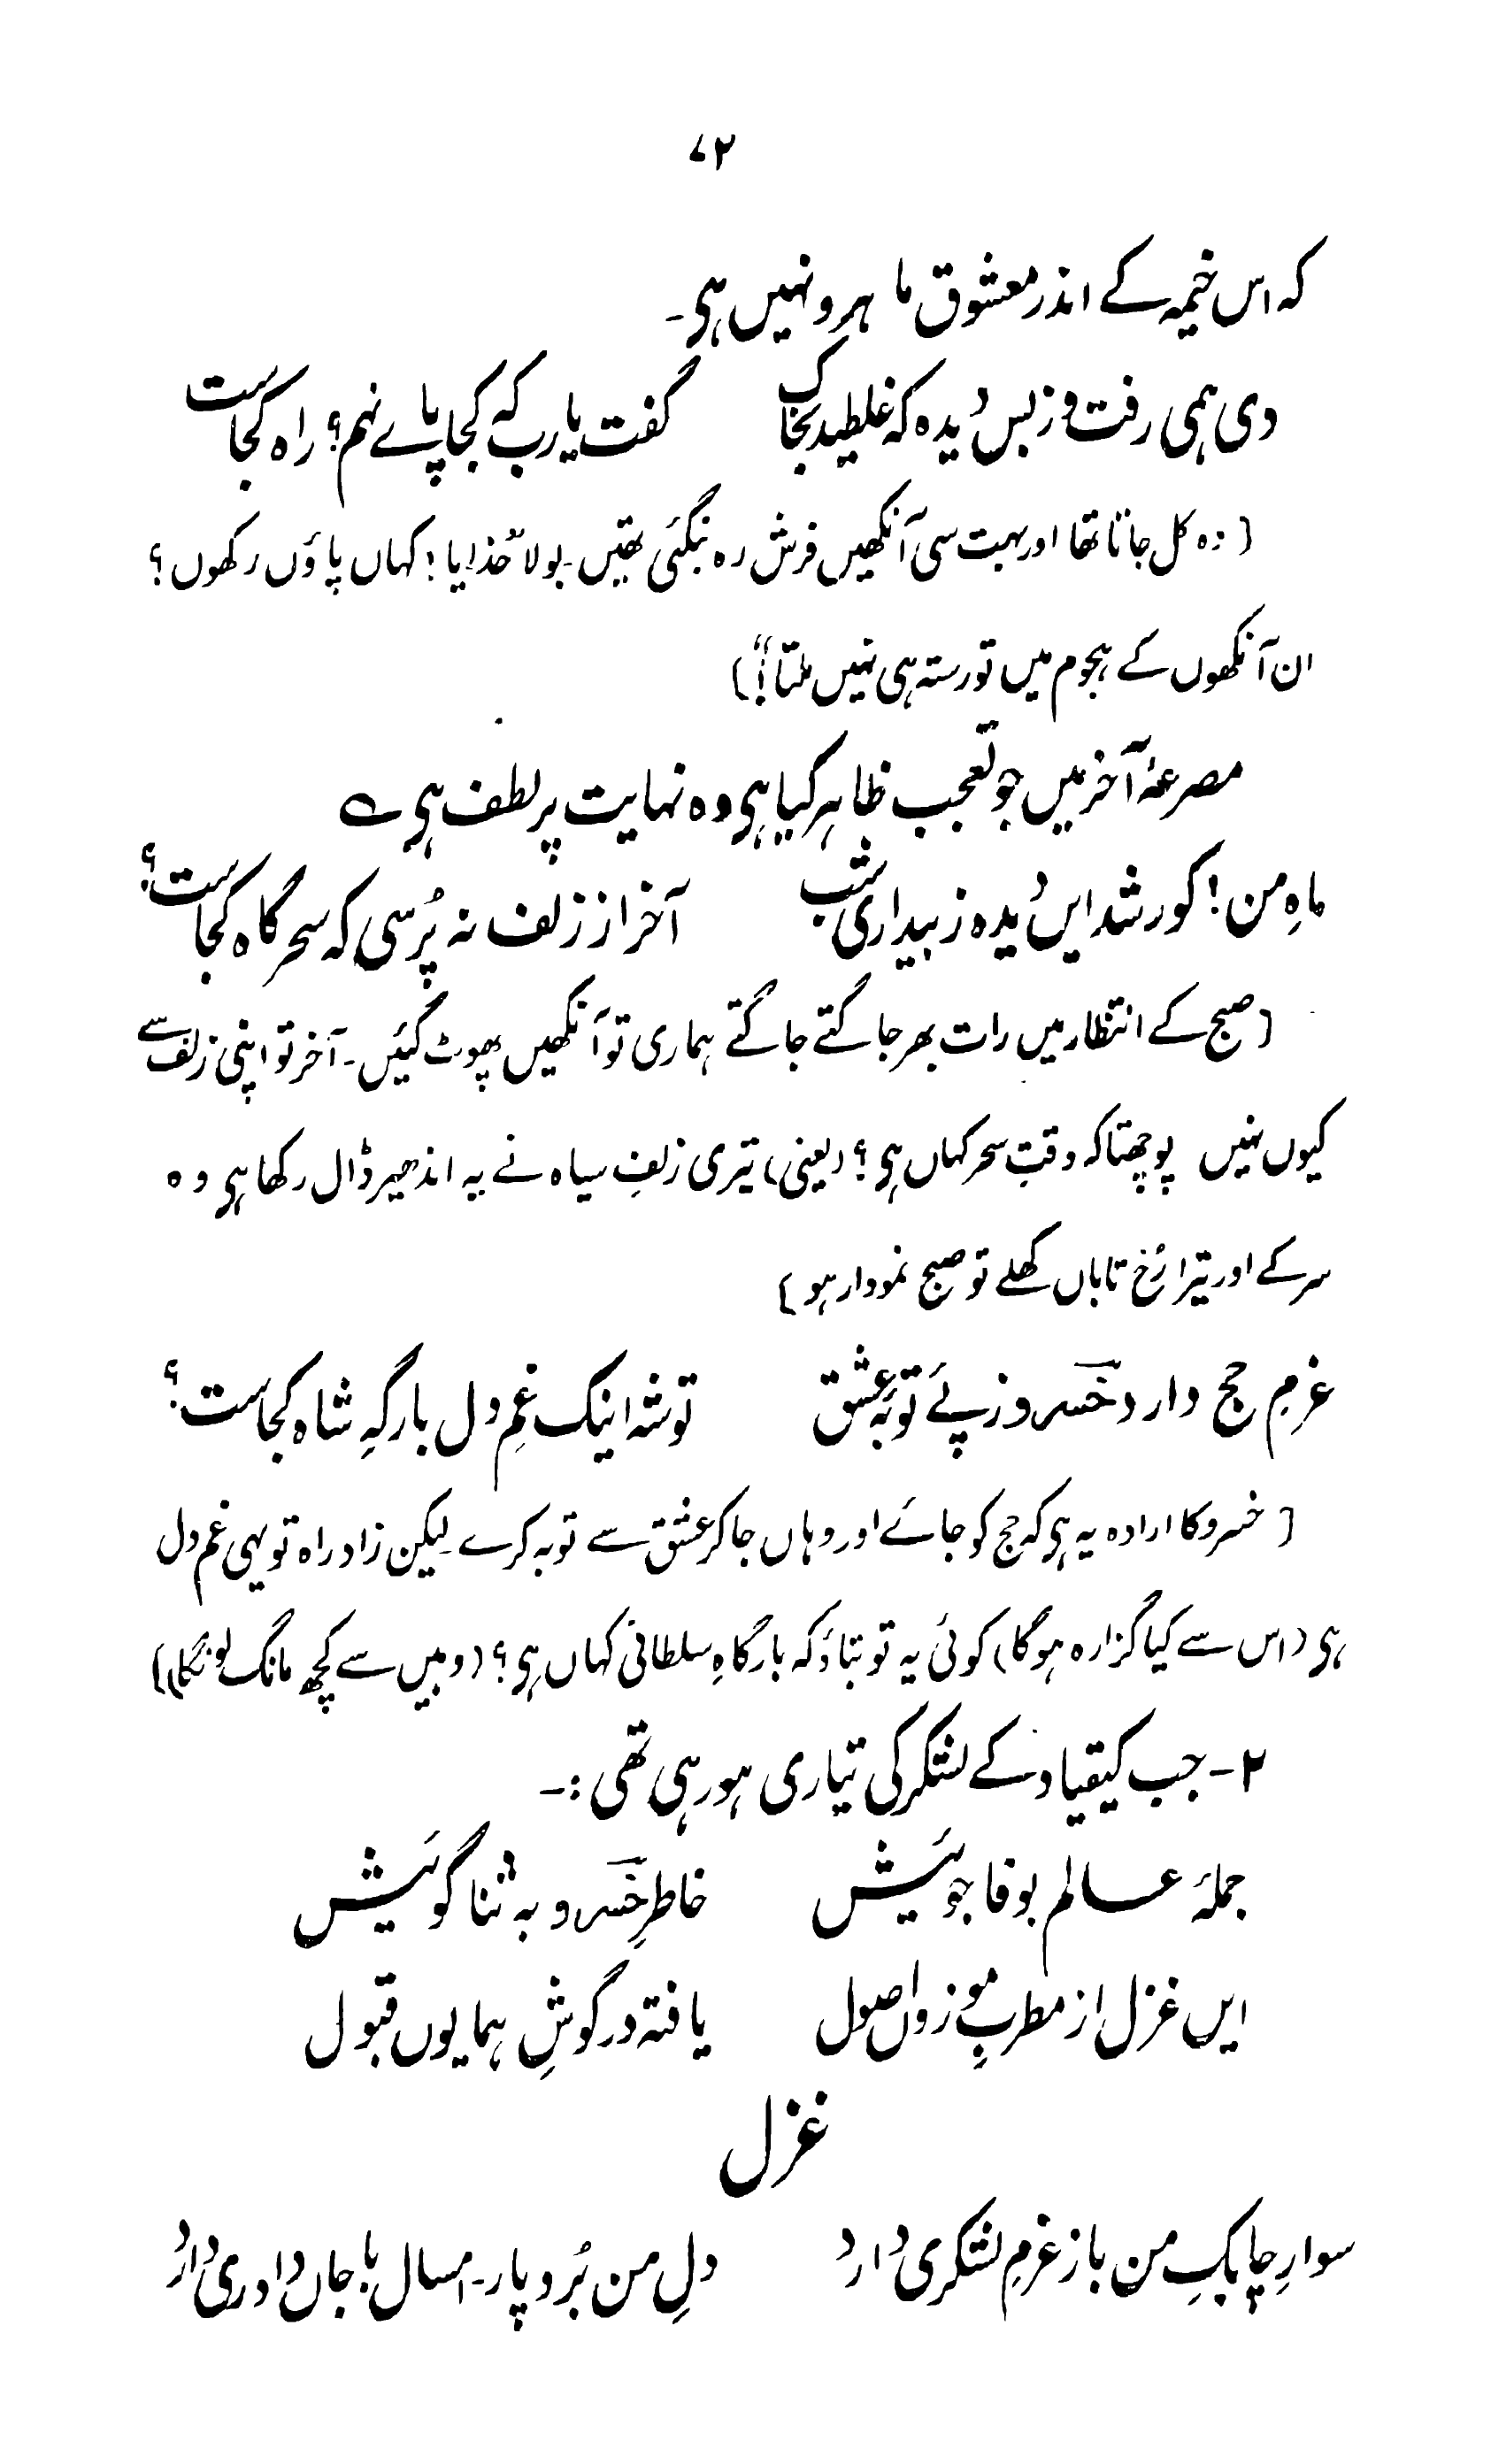 ۷۲
کہ اس خیمہ کے اندر معشوق ماہرو نہیں ہی۔
دی ہمی رفت و زبس دیدہ کہ غلطید بخاک گفت یارب کہ کجا پاے نہم؟ راہ کجاست
[وہ کل جاتا تھا اور بہت سی آنکھیں فرش رہ بنگئی تھیں۔ بولا "خدایا! کہاں پاؤں رکھوں؟
ان آنکھوں کے ہجوم میں تو رستہ ہی نہیں ملتا!"]
مصرعۂ آخر میں جو تعجب ظاہر کیا ہی وہ نہایت پر لطف ہی ؎
ماہِ من! کور شد ایں دیدہ ز بیداری شب آخر از زلف نہ پُرسی کہ سحر گاہ کجاست؟
[صبح کے انتظار میں رات بھر جاگتے جاگتے ہماری تو آنکھیں پھوٹ گئیں۔ آخر تو اپنی زلف سے
کیوں نہیں پوچھتا کہ وقتِ سحر کہاں ہی؟ (یعنی) تیری زلفِ سیاہ نے یہ اندھیر ڈال رکھا ہی وہ
سرکے اور تیرا رُخِ تاباں کھلے تو صبح نمودار ہو]
عزمِ حج دارد خسرو ز پئے توبۂ عشق توشہ اینک غمِ دل بارگہِ شاہ کجاست؟
[خسرو کا ارادہ یہ ہی کہ حج کو جائے اور وہاں جا کر عشق سے توبہ کرے۔ لیکن زاد راہ تو یہی غم دل
ہی (اس سے کیا گزارہ ہوگا) کوئی یہ تو بتاؤ کہ بارگاہِ سلطانی کہاں ہی؟ (وہیں سے کچھ مانگ لونگا)]
۲۔ جب کیقباد کے لشکر کی تیاری ہو رہی تھی :۔
جملۂ عالم بوفا جوئیش خاطرِ خسرو بہ ثنا گوئیش
ایں غزل از مطربِ موزوں اصول یافتہ در گوشِ ہمایوں قبول
غزل
سوارِ چابکِ من باز عزمِ لشکری دارد دلِ من بُرد پار۔ امسال با جاں داوری دارد